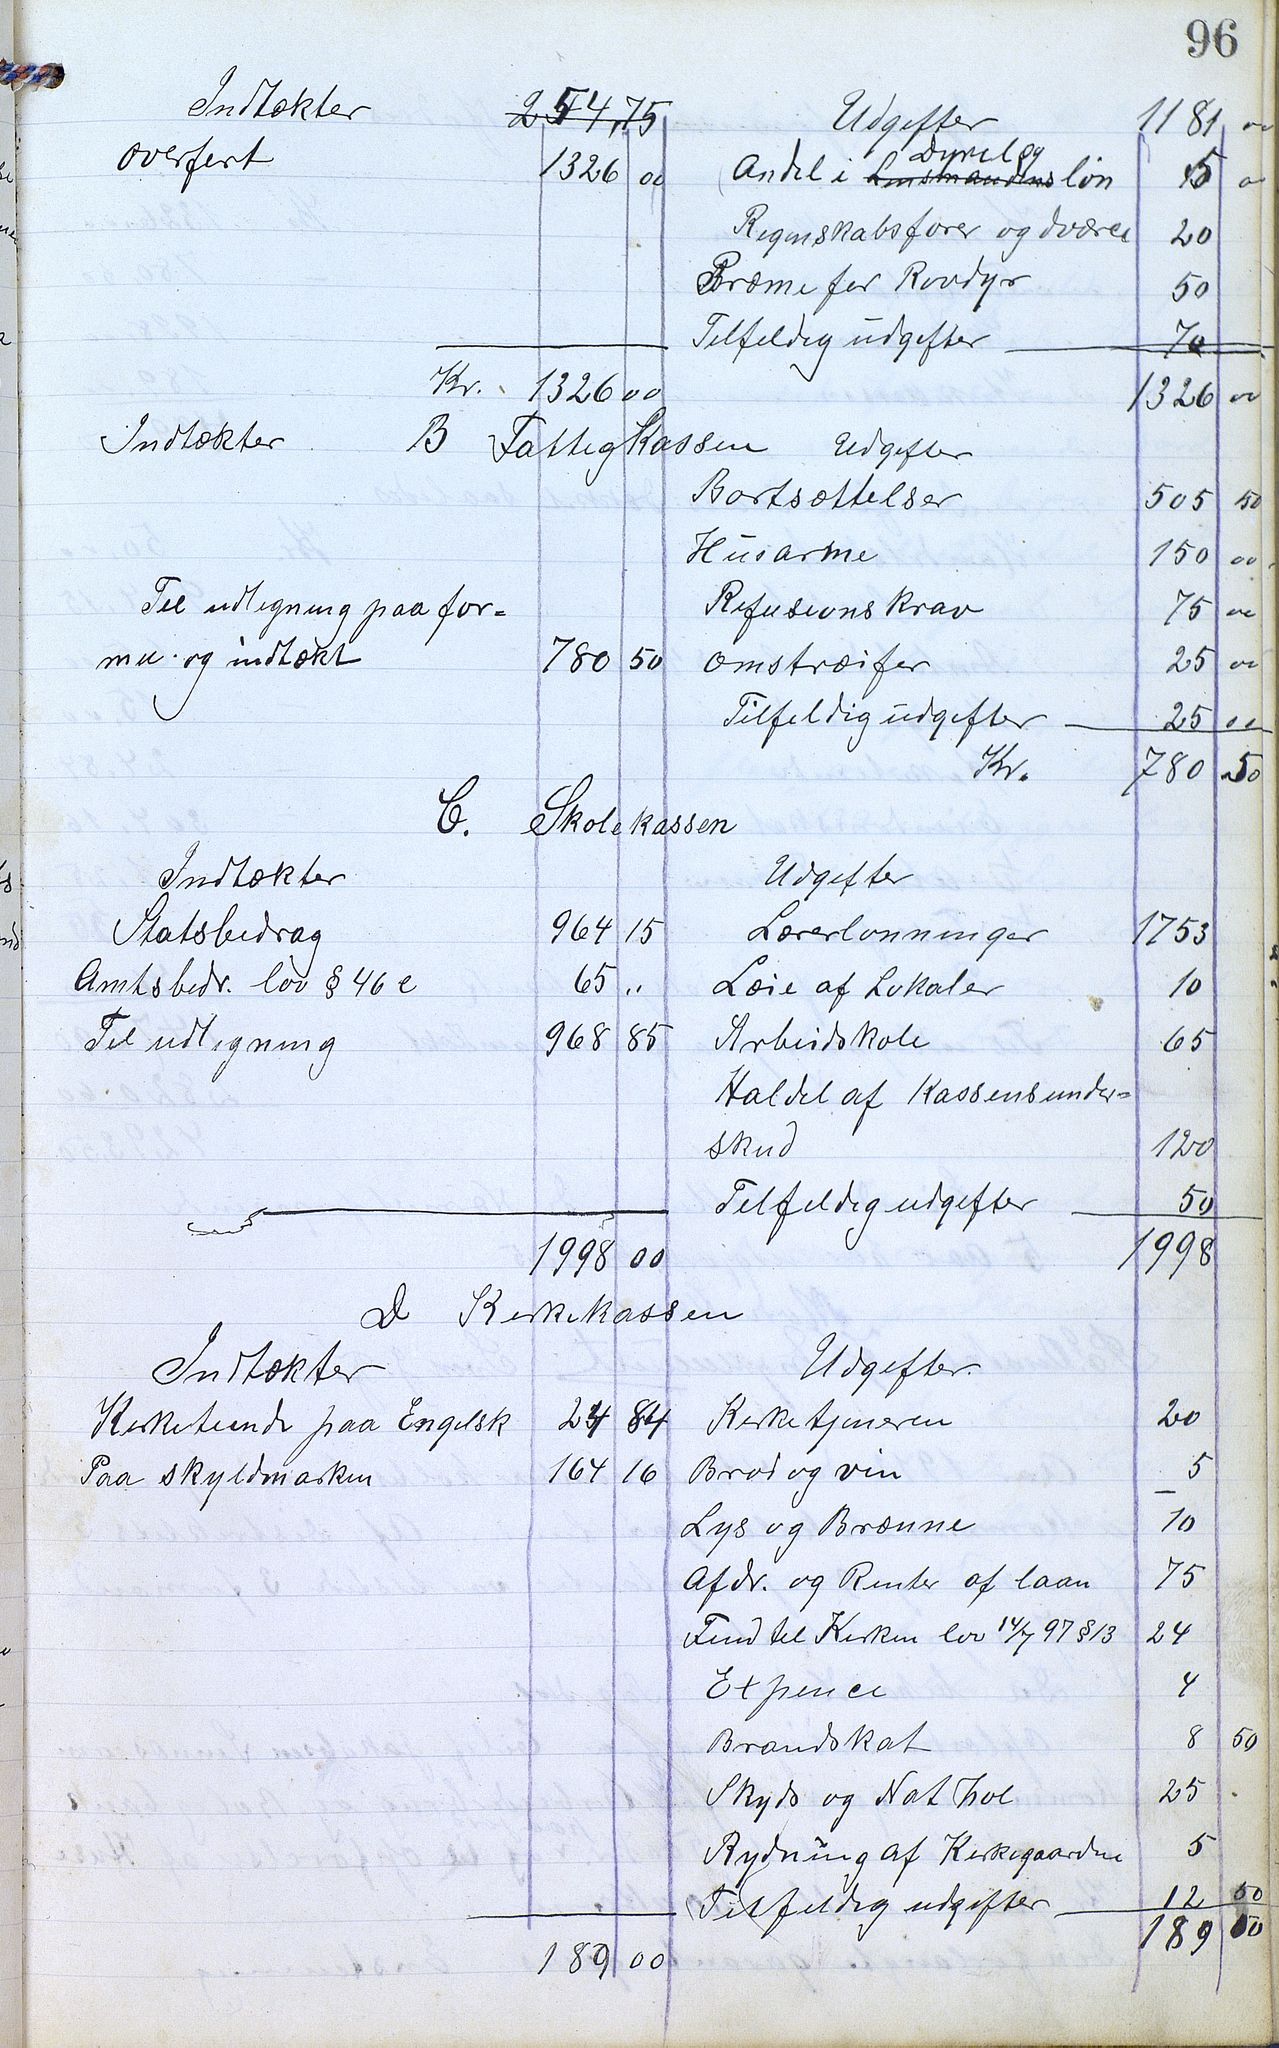 96
Indtækter 254,75 Udgefter 1181 00
overfert 1326 00 Andel i Lensmandens Dyrelæg løn 5 00
Regnskabsfører og dværee 20
Præme for Rovdyr 50
Telfeldig udgefter 70
Kr. 1326 00 1326 00
Indtækter B Fattegkassen Udgefter
Bortsættelser 505 50
Husarme 150 00
Tel udlegning paa for= Refusionskrav 75 00
mu. og indtækt 780 50 omstræifer 25 00
Tilfeldig udgefter 25 00
Kr. 780 50
C. Skolekassen
Indtækter Udgefter
Statsbedrag 964 15 Lærerlønninger 1753
Amtsbedr. lov § 46 e 65 " Læie af Lokaler 10
Tel udlegning 968 85 Arbeidskole 65
Haldel af Kassensunder=
skud 120
Telfeldig udgefter 50
1998 00 1998
D Kerkekassen
Indtækter Udgefter.
Kerketeende paa Engelsk 24 84 Kerketjeneren 20
Paa skyldmarken 164 16 Brød og vin 5
Lys og Brænne 10
Afdr. og Renter af laan 75
Fend tel Kerken lov 14/7 97 § 13 24
Expence 4
Brandskat 8 50
Skyds og Nathol 25
Rydning af Kerkegaardne 5
Telfeldig udgefter 12 50
189 00 189 00